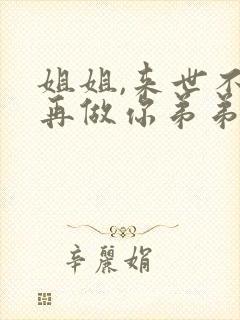 姐姐,来世不
再做你弟弟
辛丽娟